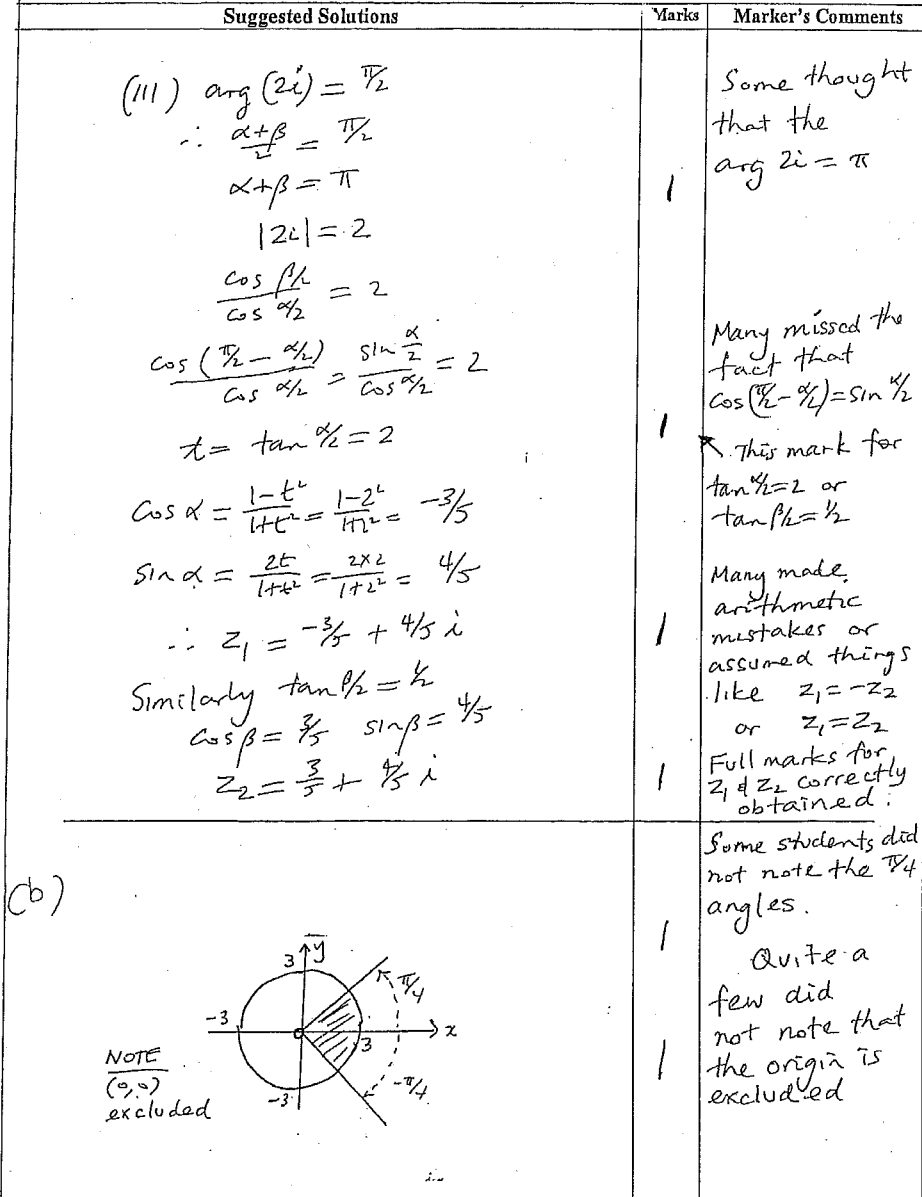 Suggested Solutions
Marks
Marker's Comments
(III) arg (2i) = π/2
∴ α+β/2 = π/2
α+β = π
1
|2i| = 2
cos β/2 / cos α/2 = 2
cos (π/2 − α/2) / cos α/2 = sin α/2 / cos α/2 = 2
t = tan α/2 = 2
1
Cos α = 1−t² / 1+t² = 1−2² / 1+2² = −3/5
Sin α = 2t / 1+t² = 2×2 / 1+2² = 4/5
∴ z₁ = −3/5 + 4/5 i
1
Similarly tan β/2 = ½
cos β = 3/5 sin β = 4/5
z₂ = 3/5 + 4/5 i
1
Some thought
that the
arg 2i = π
Many missed the
fact that
cos(π/2 − α/2) = sin α/2
This mark for
tan α/2 = 2 or
tan β/2 = ½
Many made
arithmetic
mistakes or
assumed things
like z₁ = −z₂
or z₁ = z₂
Full marks for
z₁ & z₂ correctly
obtained.
(b)
y
3
π/4
-3
x
3
-3
-π/4
NOTE
(0,0)
excluded
1
1
Some students did
not note the π/4
angles.
Quite a
few did
not note that
the origin is
excluded